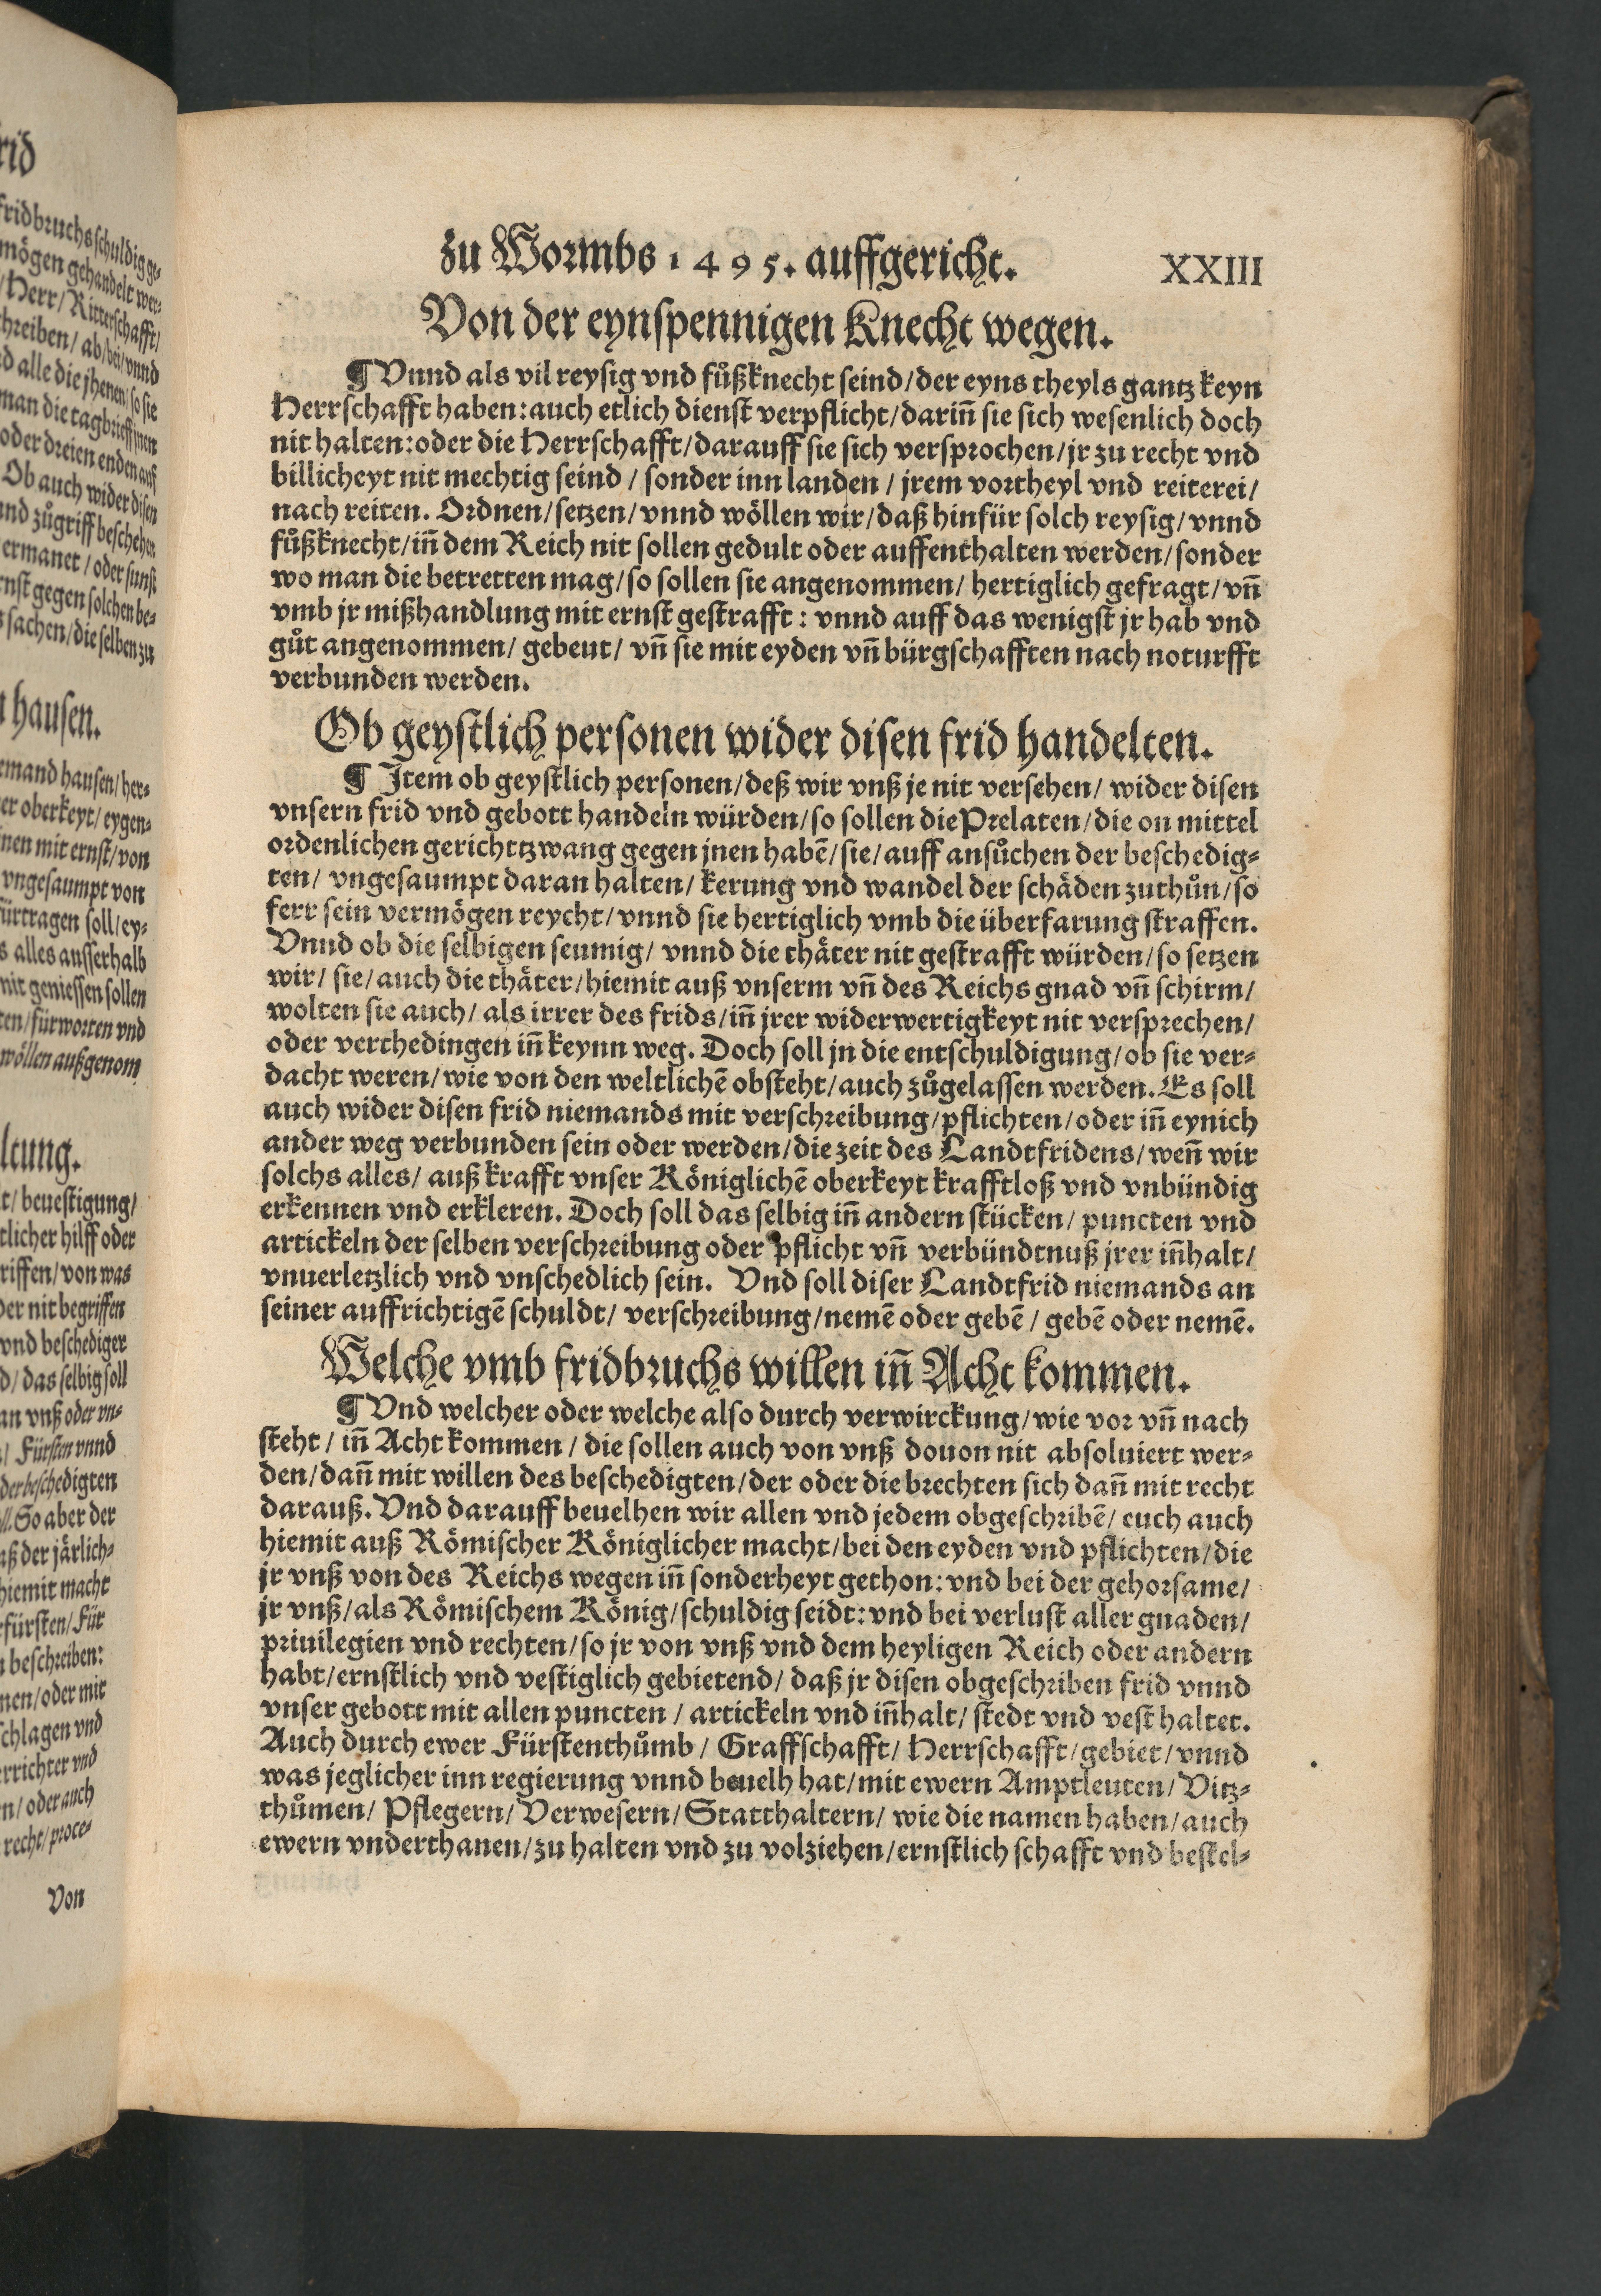 zu Wormbs 1495. auffgericht. XXIII
Von der eynspennigen Knecht wegen.
¶ Vnnd als vil reysig vnd fůßknecht seind/der eyns theyls gantz keyn
Herrschafft haben:auch etlich dienst verpflicht/dariñ sie sich wesenlich doch
nit halten:oder die Herrschafft/darauff sie sich versprochen/jr zu recht vnd
billicheyt nit mechtig seind / sonder inn landen / jrem vortheyl vnd reiterei/
nach reiten. Ordnen/setzen/vnnd wöllen wir/daß hinfür solch reysig/vnnd
fůßknecht/iñ dem Reich nit sollen gedult oder auffenthalten werden/sonder
wo man die betretten mag/so sollen sie angenommen/ hertiglich gefragt/vñ
vmb jr mißhandlung mit ernst gestrafft: vnnd auff das wenigst jr hab vnd
gůt angenommen/ gebeut/ vñ sie mit eyden vñ bürgschafften nach noturfft
verbunden werden.
Ob geystlich personen wider disen frid handelten.
¶ Item ob geystlich personen/deß wir vnß je nit versehen/ wider disen
vnsern frid vnd gebott handeln würden/so sollen die Prelaten/die on mittel
ordenlichen gerichttzwang gegen jnen habẽ/sie/auff ansůchen der beschedig⸗
ten/ vngesaumpt daran halten/ kerung vnd wandel der schäden zuthůn/so
ferr sein vermögen reycht/vnnd sie hertiglich vmb die überfarung straffen.
Vnnd ob die selbigen seumig/ vnnd die thäter nit gestrafft würden/so setzen
wir/ sie/auch die thäter/hiemit auß vnserm vñ des Reichs gnad vñ schirm/
wolten sie auch/ als irrer des frids/iñ jrer widerwertigkeyt nit versprechen/
oder verthedingen iñ keynn weg. Doch soll jn die entschuldigung/ob sie ver⸗
dacht weren/wie von den weltlichẽ obsteht/auch zůgelassen werden. Es soll
auch wider disen frid niemands mit verschreibung/pflichten/oder iñ eynich
ander weg verbunden sein oder werden/die zeit des Landtfridens/weñ wir
solchs alles/ auß krafft vnser Königlichẽ oberkeyt krafftloß vnd vnbündig
erkennen vnd erkleren. Doch soll das selbig iñ andern stücken/ puncten vnd
artickeln der selben verschreibung oder pflicht vñ verbündtnuß jrer iñhalt/
vnuerletzlich vnd vnschedlich sein. Vnd soll diser Landtfrid niemands an
seiner auffrichtigẽ schuldt/ verschreibung/nemẽ oder gebẽ / gebẽ oder nemẽ.
Welche vmb fridbruchs willen iñ Acht kommen.
¶ Vnd welcher oder welche also durch verwirckung/wie vor vñ nach
steht / iñ Acht kommen / die sollen auch von vnß douon nit absoluiert wer⸗
den/dañ mit willen des beschedigten/der oder die brechten sich dañ mit recht
darauß. Vnd darauff beuelhen wir allen vnd jedem obgeschribẽ/ euch auch
hiemit auß Römischer Königlicher macht/bei den eyden vnd pflichten/die
jr vnß von des Reichs wegen iñ sonderheyt gethon:vnd bei der gehorsame/
jr vnß/als Römischem König/schuldig seidt:vnd bei verlust aller gnaden/
priuilegien vnd rechten/so jr von vnß vnd dem heyligen Reich oder andern
habt/ernstlich vnd vestiglich gebietend/ daß jr disen obgeschriben frid vnnd
vnser gebott mit allen puncten / artickeln vnd iñhalt/ stedt vnd vest haltet.
Auch durch ewer Fürstenthůmb / Graffschafft/ Herrschafft/gebiet/vnnd
was jeglicher inn regierung vnnd beuelh hat/mit ewern Amptleuten/ Vitz⸗
thůmen/ Pflegern/ Verwesern/Statthaltern/ wie die namen haben/auch
ewern vnderthanen/zu halten vnd zu volziehen/ernstlich schafft vnd bestel⸗